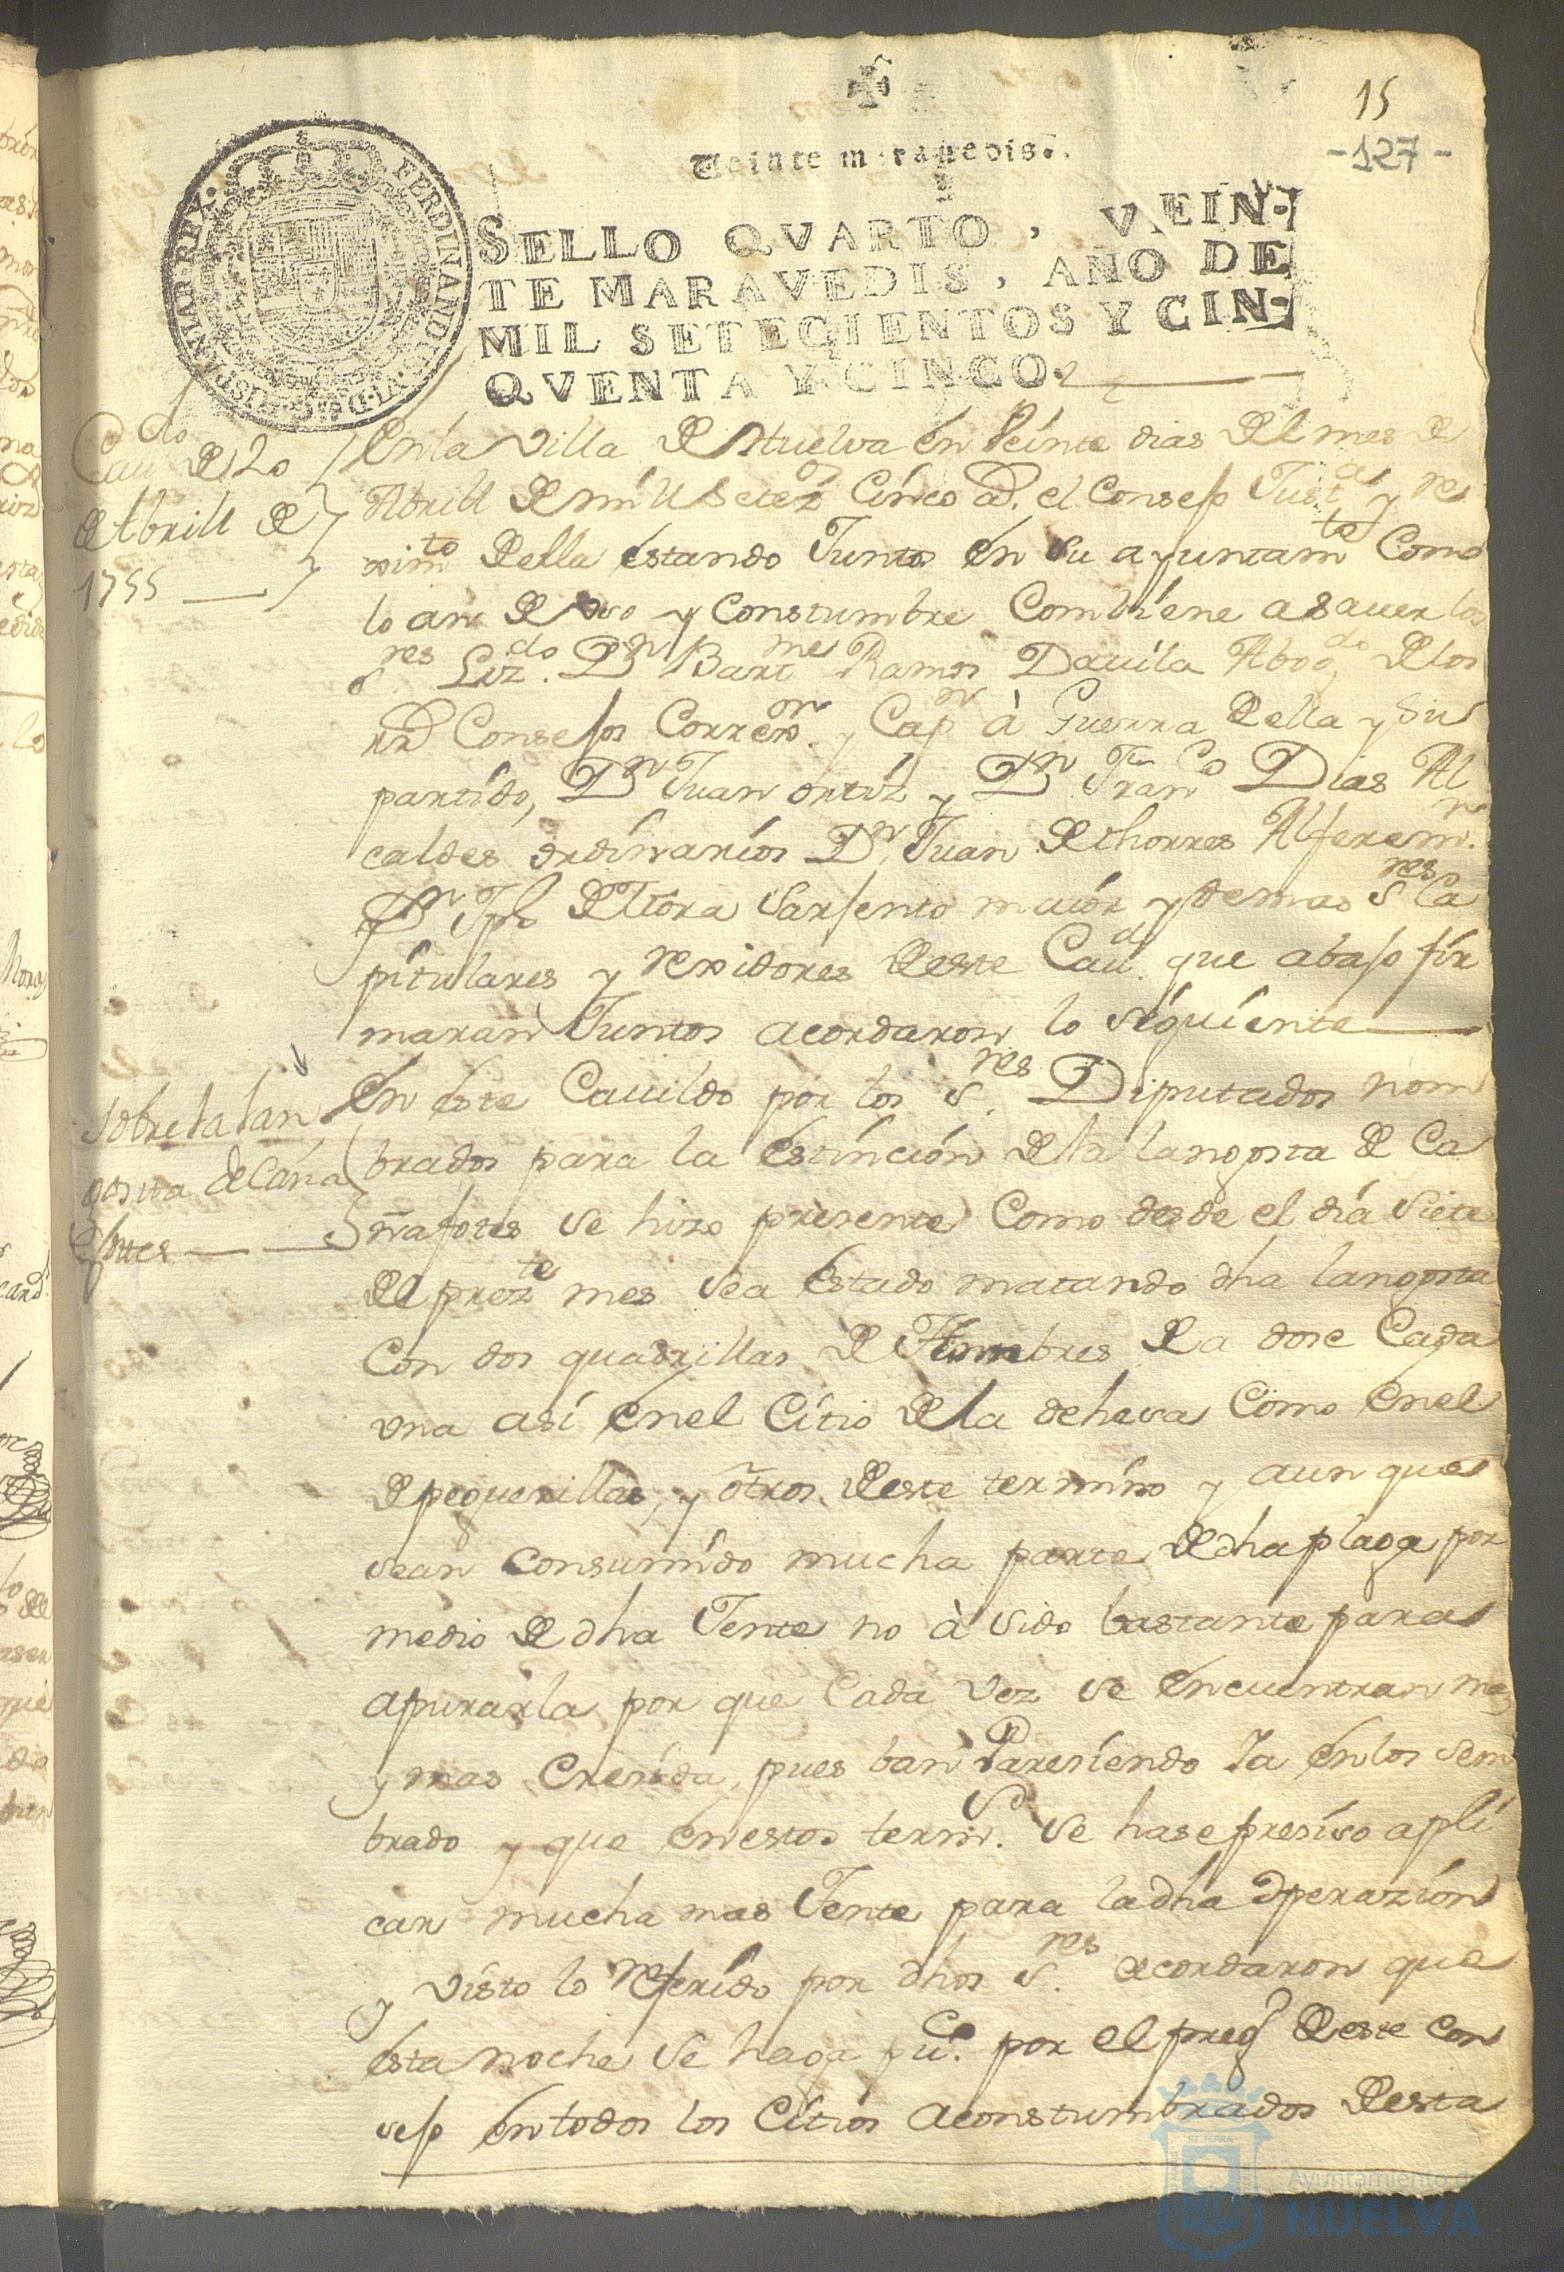 15
-127-
Veinte maravedis.
SELLO QVARTO, VEIN-
TE MARAVEDIS, AÑO DE
MIL SETECIENTOS Y CIN-
QVENTA Y CINCO.
FERDINANDUS VI D G HISPANIAR REX
Cau^do de 20
de Abrill de
1755
En la Villa de Huelva en Veinte dias del mes de
Abrill de mill Setez^s Cinco a^s. el Consejo Just^a y Re
ximt^o della estando Juntos en su ayuntam^te Como
lo an de uso y Constumbre Combiene a sauer los
S^res Liz^do. D^n Bart^me Ramos Dauila Abog^do de los
R^s Consejos Correx^or. y Cap^n à Guerra della y Su
partido, D^n Juan ortiz y D^n Fran^co Dias Al
caldes ordinarios D^n Juan de thorres Alferem^r.
D^n Jph de Mora Sarjento maior y demas S^res Ca
pitulares y Rexidores deste Cau^do. que abajo fir
maran Juntos acordaron lo siguiente
Sobre la lan
gosta de Caña
fotes
En este Cauildo por los S^res. Diputados nom
brados para la estincion de la langosta de Ca
ñafotes se hizo presente Como desde el dia Siete
del prez^te mes Sea estado matando dha langosta
Con dos quadrillas de Hombres de a dose Cada
una asi en el Citio de la dehesa Como en el
de peguerillas, y otros deste termino y aun que
sean consumido mucha parte de dha plaga por
medio de dha Jente no à sido bastante para
apurarla por que Cada Vez se encuentran mas
y mas Cresida, pues ban Paresiendo Ia en los sem
brado y que en estos term^s. Se hase presiso apli
car mucha mas Jente para la dha operazion
y visto lo Referido por dhos S^res. acordaron que
esta noche se haga pu^co. por el preg^o deste Con
sejo en todos los Citios aconstumbrados desta
Ayuntamiento de
HUELVA